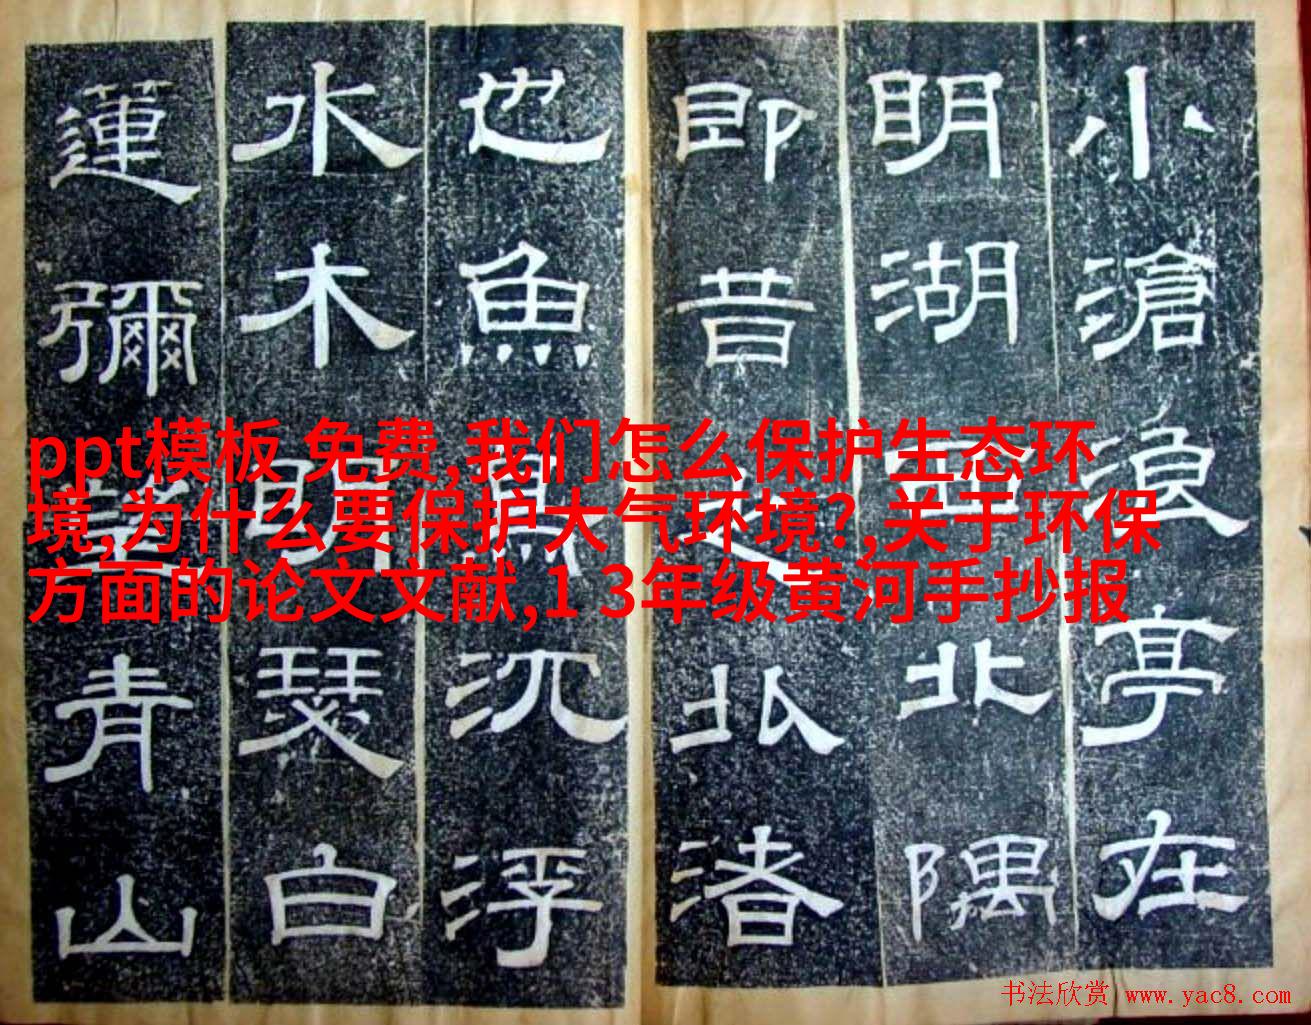 小滄浪亭在
明湖西北隅
即昔之北渚
也魚鳥沉浮
水木明瑟白
蓮彌望青山
ppt模板 免费,我们怎么保护生态环
境,为什么要保护大气环境?,关于环保
方面的论文文献,1 3年级黄河手抄报
书法欣赏 www.yac8.com